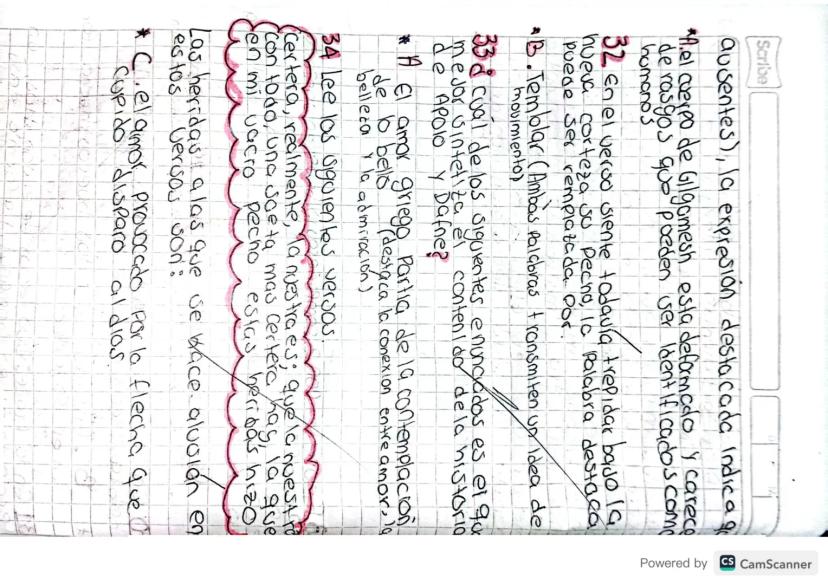 Scribe
ausentes), la expresión destacada indica q
*A. el cuerpo de Gilgamesh esta deformado y carece
de rasgos que pueden ser identificados como
humanos
32 en el verso siente todavía trepidar bajo la
nueva corteza su pecho, la palabra destaca
puede ser remplazada por
*B. Temblar (Ambas palabras transmiten un idea de
movimiento)
33 ¿cuál de los siguientes enunciados es el que
mejor sintetiza el contenido de la historia
de Apolo y Dafne?
*A El amor griego partia de la contemplación
de lo bello (destaca la conexion entre amor, la
belleza y la admiración)
34 Lee los siguientes versos.
Certera, realmente, la nuestra es; que a nuestra
con todo, una saeta mas certera hay, la que
en mi vacro pecho estas heridas hizo
Las heridas a las que se hace alusión en
estos versos son:
*C. el amor provocado por la flecha que
cupido disparo al dias.
Powered by CS CamScanner